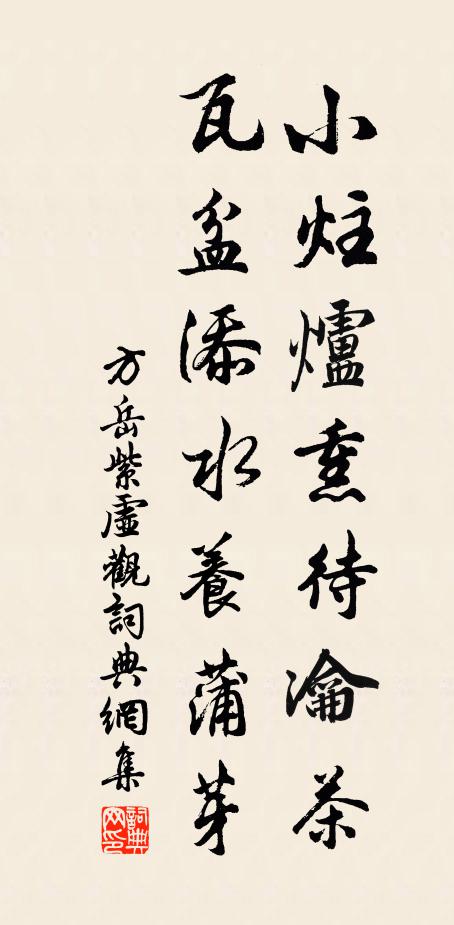 小炷爐熏待瀹茶
瓦盆添水養蒲芽
方岳紫虛觀詞典網集
詞典網印